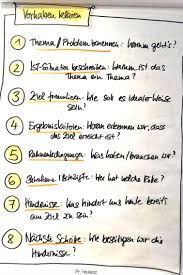 Vorhaben klären
1 Thema / Problem benennen: Worum geht's?
2 Ist-Situation beschreiben: Warum ist das
Thema ein Thema?
3 Ziel formulieren: Wie soll es idealer Weise
sein?
4 Ergebniskriterien: Woran erkennen wir, dass
das Ziel erreicht ist?
5 Rahmenbedingungen: Was haben/brauchen wir?
6 : Wer hat welche Rolle?
7 Hindernisse: Was hindert uns heute bereits
am Ziel zu sein?
8 Nächste Schritte: Wie beseitigen wir die
Hindernisse?